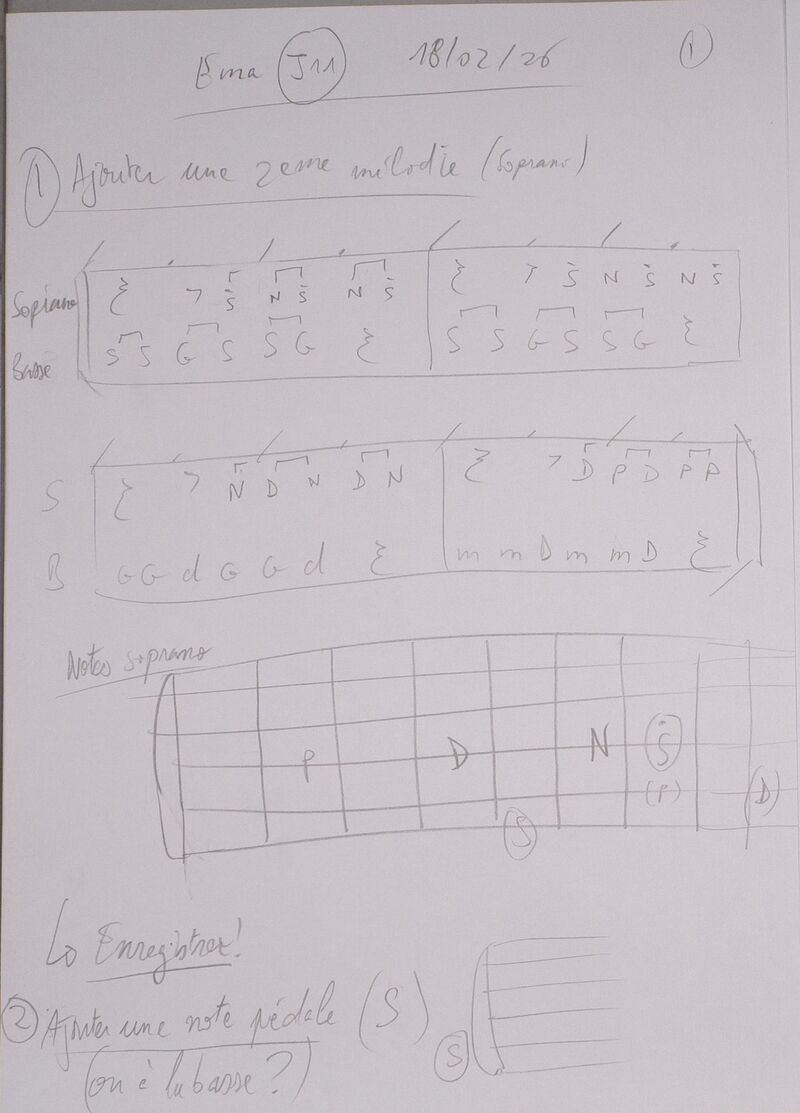 Ema J11 18/02/26 1
1 Ajouter une 2eme mélodie (Soprano)
Soprano Ṡ N Ṡ N Ṡ Ṡ N Ṡ N Ṡ
Basse S S G S S G S S G S S G
S N D N D N D P D P P
B G G d G G d m m D m m D
Notes Soprano
P D N Ṡ
(P) (D)
S
Enregistrer!
2 Ajouter une note pédale (S)
S
(ou à la basse?)